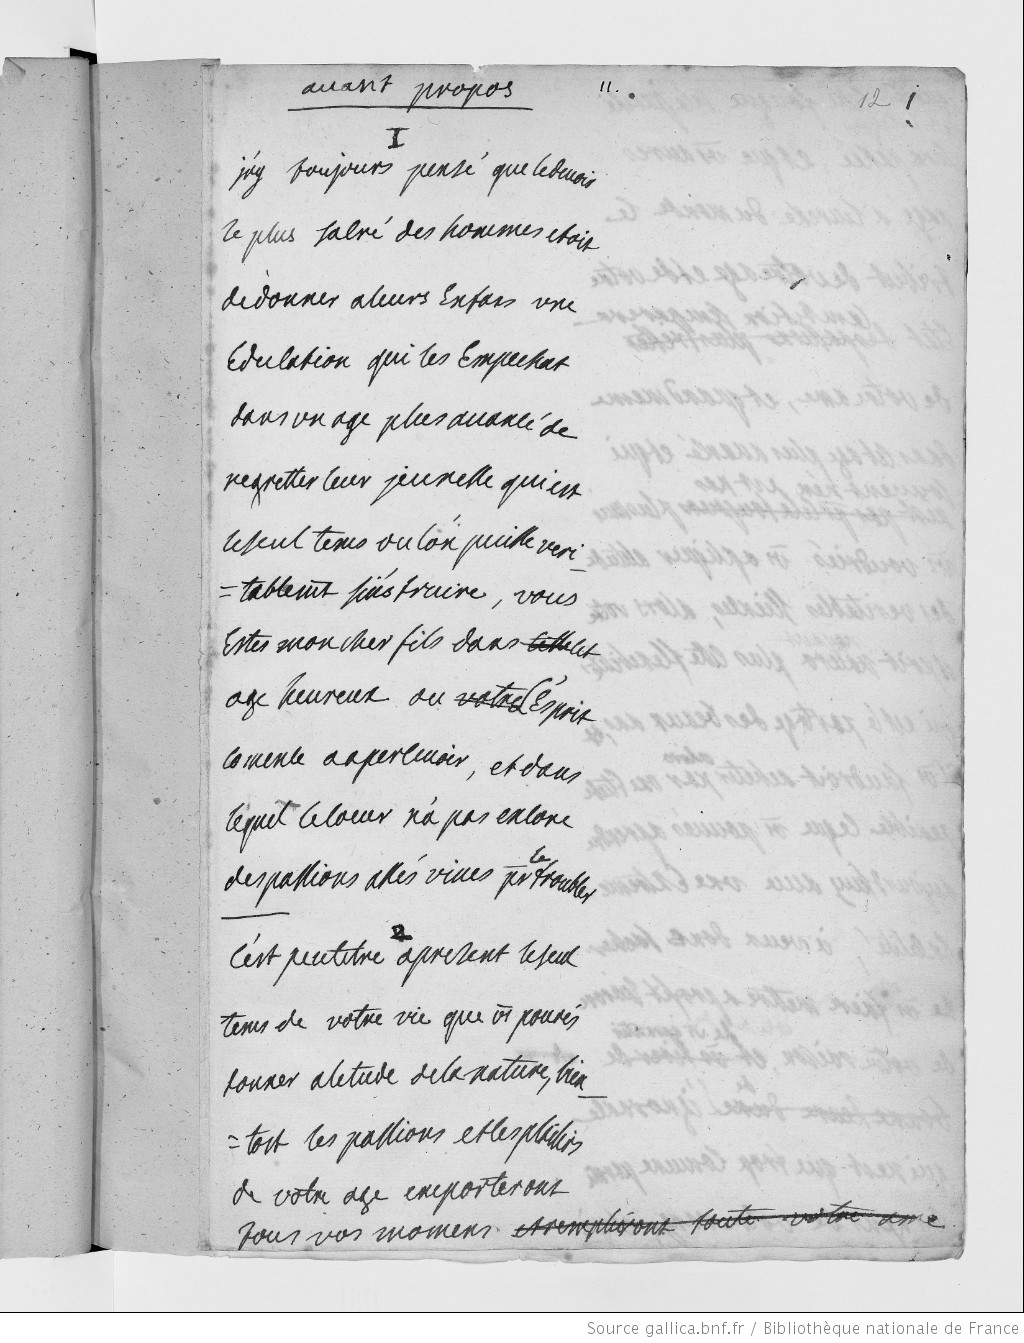 avant propos 11. 12 1
I
j'ay toujours pensé que ledevoir
le plus sacré des hommes etoit
dedonner aleurs Enfans une
Education qui les Empechat
dans un age plus avancé de
regretter leur jeunesse qui est
leseul tems ou lon puisse veri
=tablemt s'instruire, vous
Estes mon cher fils dans cet
age heureux ou votre L'Esprit
comence aapercevoir, et dans
lequel le coeur n'a pas encore
des passions assés vives pr le troubler
2
C'est peutetre apresent leseul
tems de votre vie que vs pourés
donner aletude dela nature, bien
=tost les passions et lesplaisirs
de votre age emporteront
tous vos momens et rempliront toute votre ame
Source gallica.bnf.fr / Bibliothèque nationale de France